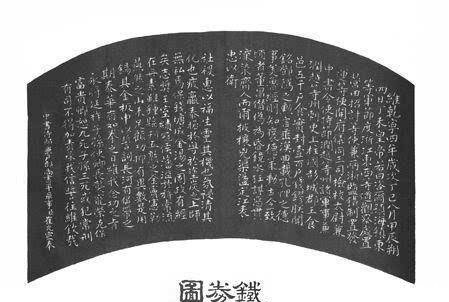 維乾寧四年歲次丁巳八月甲辰朔
四日丁未皇帝若曰咨爾鎮海鎮東
等軍節度浙江東西等道觀察處置
營田招討等使兼兩浙鹽鐵制置發
運等使開府儀同三司檢校太尉兼
中書令使持節潤越等州諸軍事兼
潤越等州刺史上柱國彭城郡王食
邑五千戶食實封壹佰戶錢鏐朕聞
銘鄧隲之勳言垂漢典載孔悝之德
事美魯經則知褒德策勳古今一致
頃者董昌僭偽為昏鏡水狂謀惡貫
渫染齊人而爾披攘凶渠盪定江表
忠以衛
社稷惠以福生靈其機也氛祲清其
化也疲羸泰拯粵於塗炭之上師
無私焉保餘杭於金湯之固政有經
矣志獎王室績冠侯藩溢於旂常流
在丹素雖鍾繇刊五熟之釜竇憲勒
燕然之山未足論功抑有異數是用
錫其金版申以誓詞長河有似帶之
期泰華有如拳之日惟我念功之旨
永將延祚子孫使卿長襲寵榮克保
富貴卿恕九死子孫三死或犯常刑
有司不得加責承我信誓往惟欽哉
中書侍郎兼戶部尚書平章事臣崔胤宣奉
鐵券圖